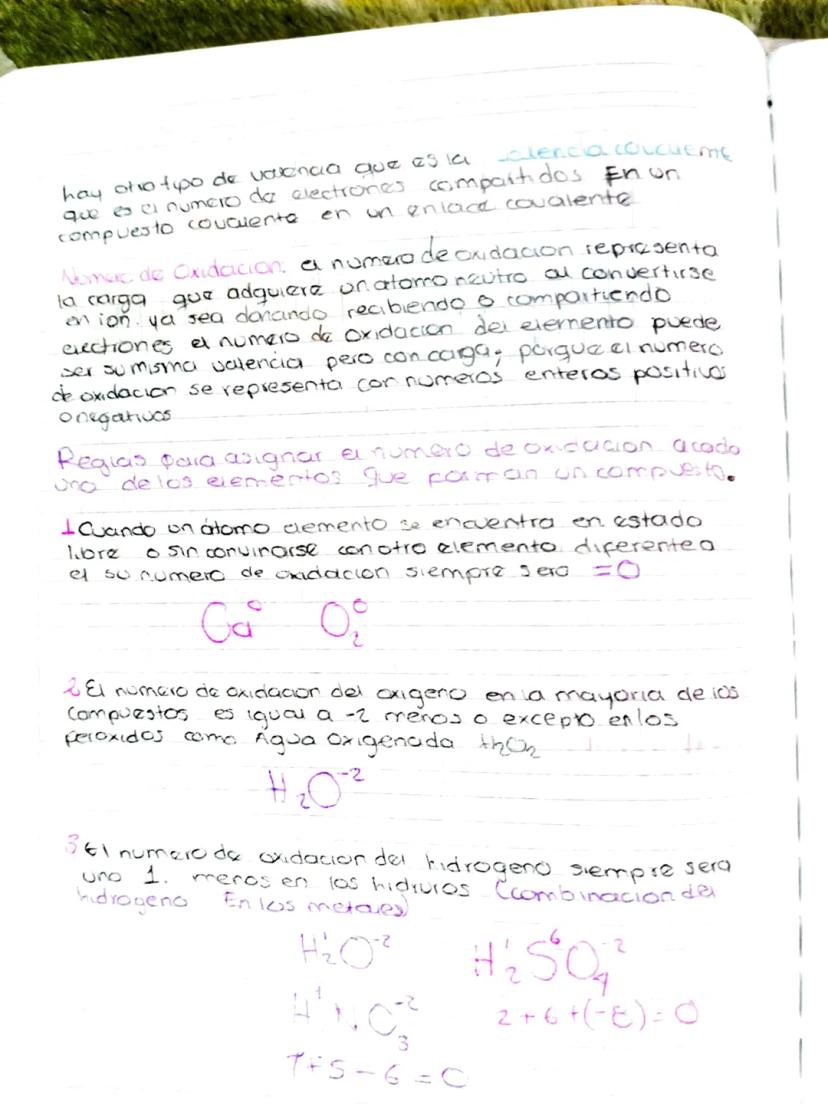 hay otro tipo de valencia que es la valencia covalente
que es el numero de electrones compartidos En un
compuesto covalente en un enlace covalente
Numero de Oxidacion: el numero de oxidacion representa
la carga que adquiere un atomo neutro al convertirse
en ion. ya sea donando recibiendo o compartiendo
electrones el numero de oxidacion del elemento puede
ser su misma valencia pero con carga, porque el numero
de oxidacion se representa con numeros enteros positivos
o negativos
Reglas para asignar el numero de oxidacion a cada
uno de los elementos que forman un compuesto.
1 Cuando un átomo elemento se encuentra en estado
libre o sin convinarse con otro elemento diferente a
el su numero de oxidacion siempre sera =0
Ca⁰ O₂⁰
2 El numero de oxidacion del oxigeno en la mayoria de los
compuestos es igual a -2 menos o excepto en los
peroxidos como Agua Oxigenada H₂O₂
H₂O⁻²
3 El numero de oxidacion del hidrogeno siempre sera
uno 1. menos en los hidruros (combinacion del
hidrogeno En los metales)
H₂¹O⁻² H₂¹S⁶O₄⁻²
H¹NO₃⁻² 2+6+(-8)=0
1+5-6=0